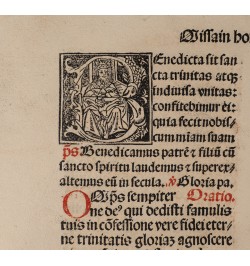 Missa in ho
Benedicta sit san
cta trinitas atqꝫ
indiuisa vnitas:
confitebimur ei:
quia fecit nobis/
cum mĩam suam
p̃s Benedicamus patrẽ ⁊ filiũ cũ
sancto spiritu laudemus ⁊ superex/
altemus eũ in secula. ℣ Gloria pa.
Oĩp̃s sempiter Oratio.
ne deꝰ qui dedisti famulis
tuis in cõfessione vere fidei eter/
ne trinitatis gloriaʒ agnoscere